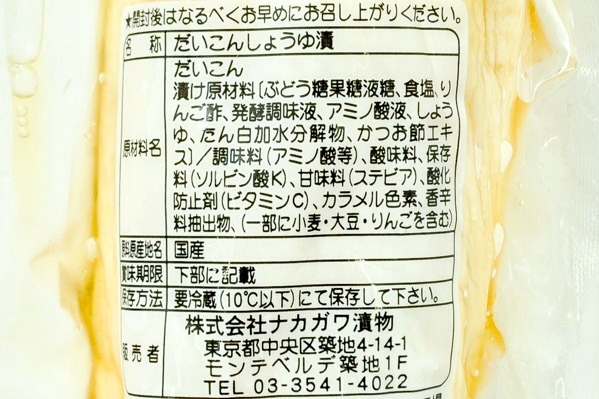 ★開封後はなるべくお早めにお召し上がりください。
名 称 だいこんしょうゆ漬
だいこん
漬け原材料〔ぶどう糖果糖液糖、食塩、り
んご酢、発酵調味液、アミノ酸液、しょう
ゆ、たん白加水分解物、かつお節エキ
原材料名 ス〕／調味料(アミノ酸等)、酸味料、保存
料(ソルビン酸K)、甘味料(ステビア)、酸化
防止剤(ビタミンC)、カラメル色素、香辛
料抽出物、(一部に小麦・大豆・りんごを含む)
原料原産地名 国産
賞味期限 下部に記載
保存方法 要冷蔵(10℃以下)にて保存して下さい。
株式会社ナカガワ漬物
販売者 東京都中央区築地4-14-1
モンテベルデ築地1F
TEL 03-3541-4022